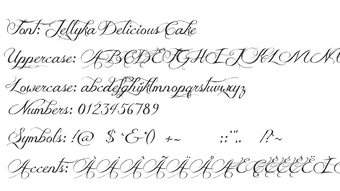 Font: Jellyka Delicious Cake
Uppercase: ABCDEFGHIJKLMNO
Lowercase: abcdefghijklmnopqrstuvwxyz
Numbers: 0123456789
Symbols: !@ $ '&'() +~ ::'".. /?~
Accents: ÀÁÂÃÄÅÆÇÈÉÊËÌ